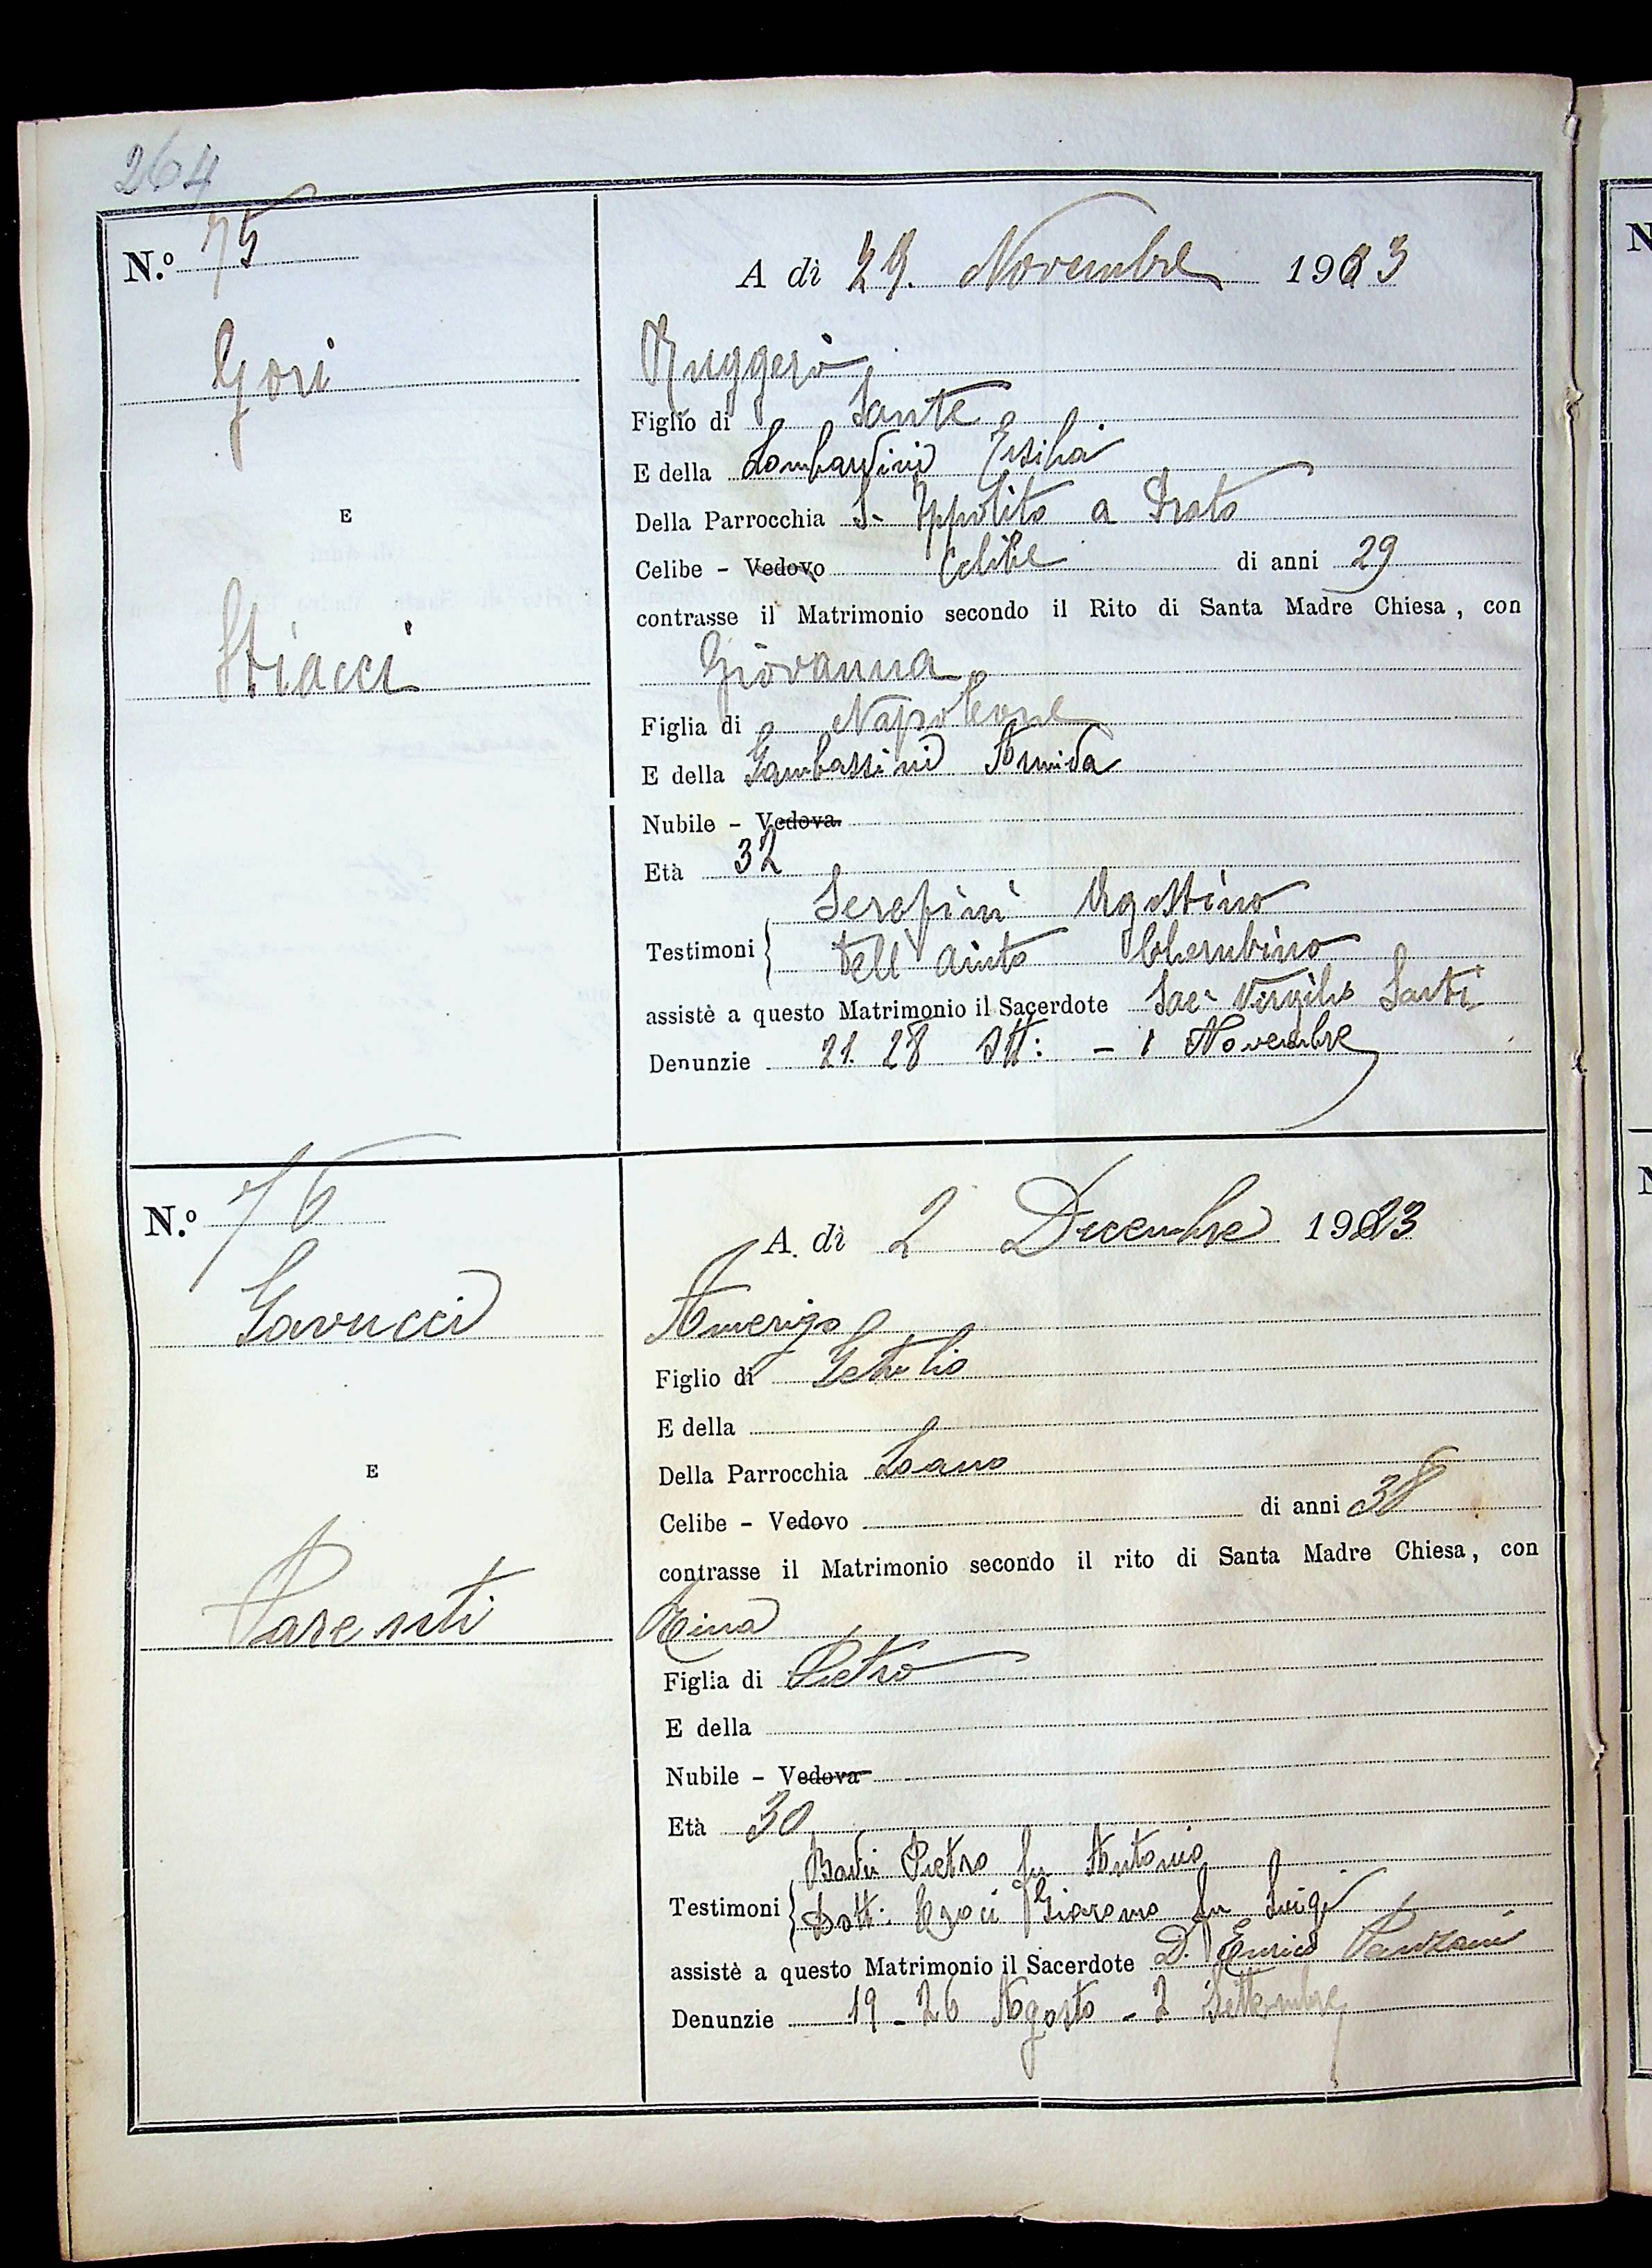 264
N.º 75
A dì 29. Novembre 1923
Gori
Ruggero
Figlio di Sante
E della Lombardini Ersilia
Della Parrocchia S. Ippolito a Prato
E
Celibe - Vedovo Celibe di anni 29
contrasse il Matrimonio secondo il Rito di Santa Madre Chiesa, con
Stiacci
Giovanna
Figlia di Napoleone
E della Gambassini Armida
Nubile - Vedova
Età 32
Testimoni Serafini Agostino
Dell'Aiuto Cherubino
assistè a questo Matrimonio il Sacerdote Sac. Virgilio Sarti
Denunzie 21. 28 Ott: - 1 Novembre
N.º 76
A dì 2 Decembre 1923
Gavucci
Amerigo
Figlio di Getulio
E della
Della Parrocchia
E
Celibe - Vedovo di anni 38
contrasse il Matrimonio secondo il rito di Santa Madre Chiesa, con
Parenti
Figlia di Pietro
E della
Nubile - Vedova
Età 30
Testimoni Pietro fu Antonio
Dott: Giacomo fu Luigi
assistè a questo Matrimonio il Sacerdote D. Enrico Panzani
Denunzie 19 - 26 Agosto - 2 Settembre